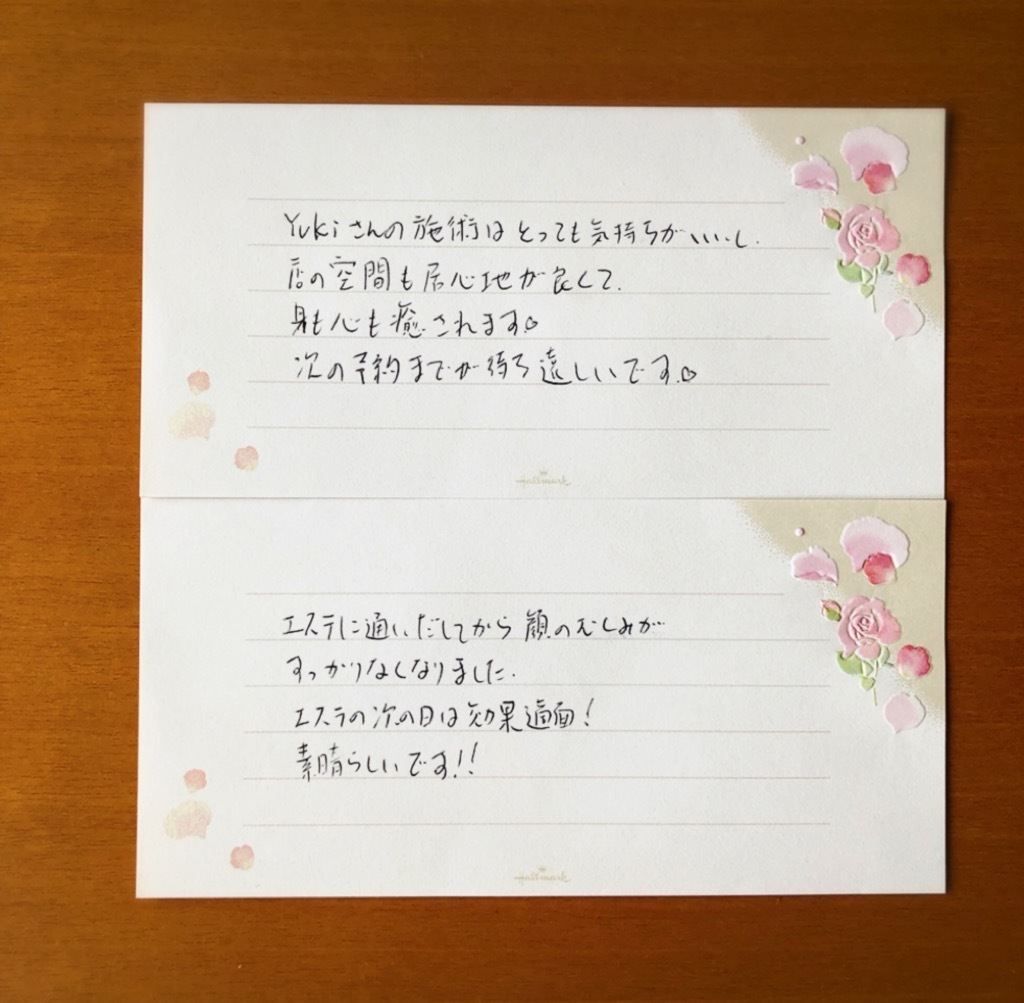 Yukiさんの施術はとっても気持ちがいいし、
店の空間も居心地が良くて、
身も心も癒されます♡
次の予約までが待ち遠しいです♡
Hallmark
エステに通いだしてから顔のむくみが
すっかりなくなりました。
エステの次の日は効果適面!
素晴らしいです!!
Hallmark